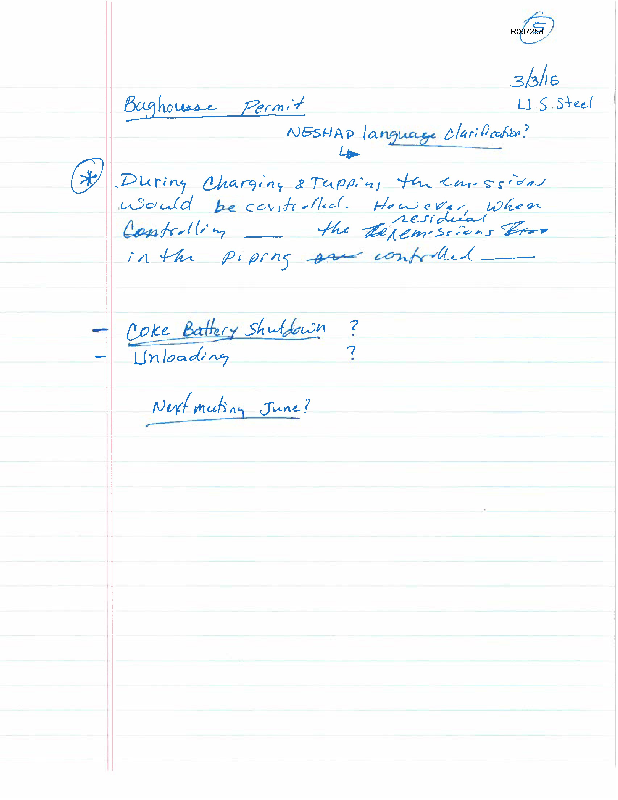 5
3/3/16
Baghouse Permit U.S. Steel
NESHAP language clarification?
* During Charging & Tapping the emissions
would be controlled. However, when
residual
Controlling ___ the emissions
in the piping controlled ___
- Coke Battery Shutdown ?
- Unloading ?
Next meeting June?